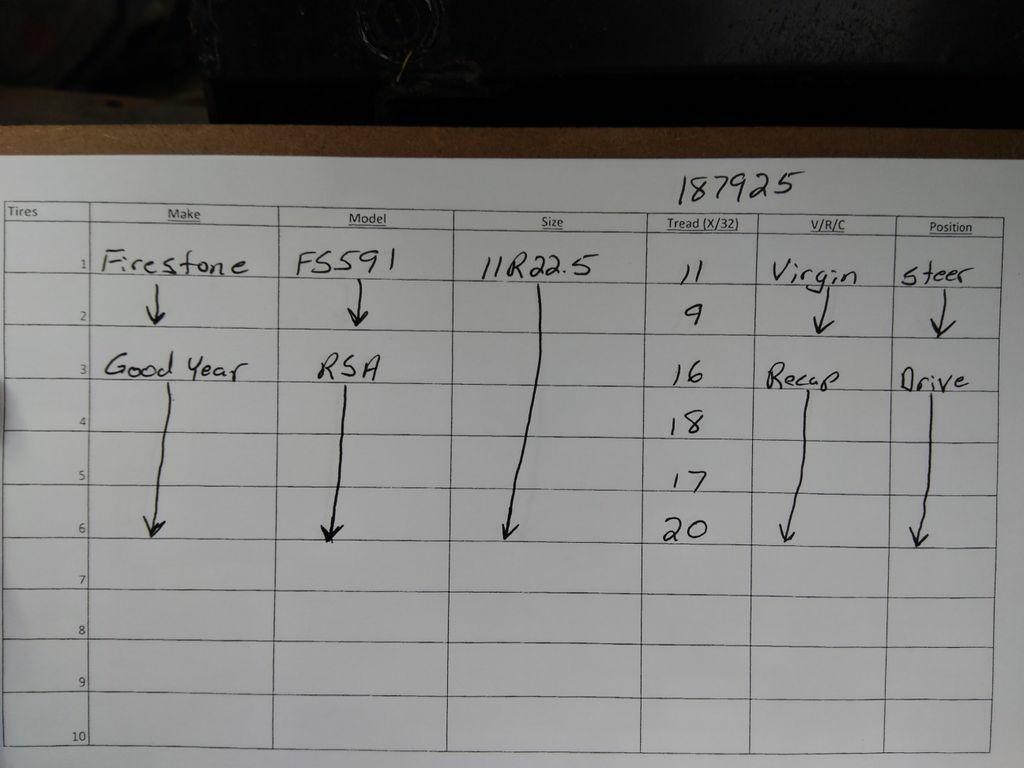 187925
Tires Make Model Size Tread (X/32) V/R/C Position
1 Firestone FS591 11R22.5 11 Virgin Steer
2 9
3 Good Year RSA 16 Recap Drive
4 18
5 17
6 20
7
8
9
10